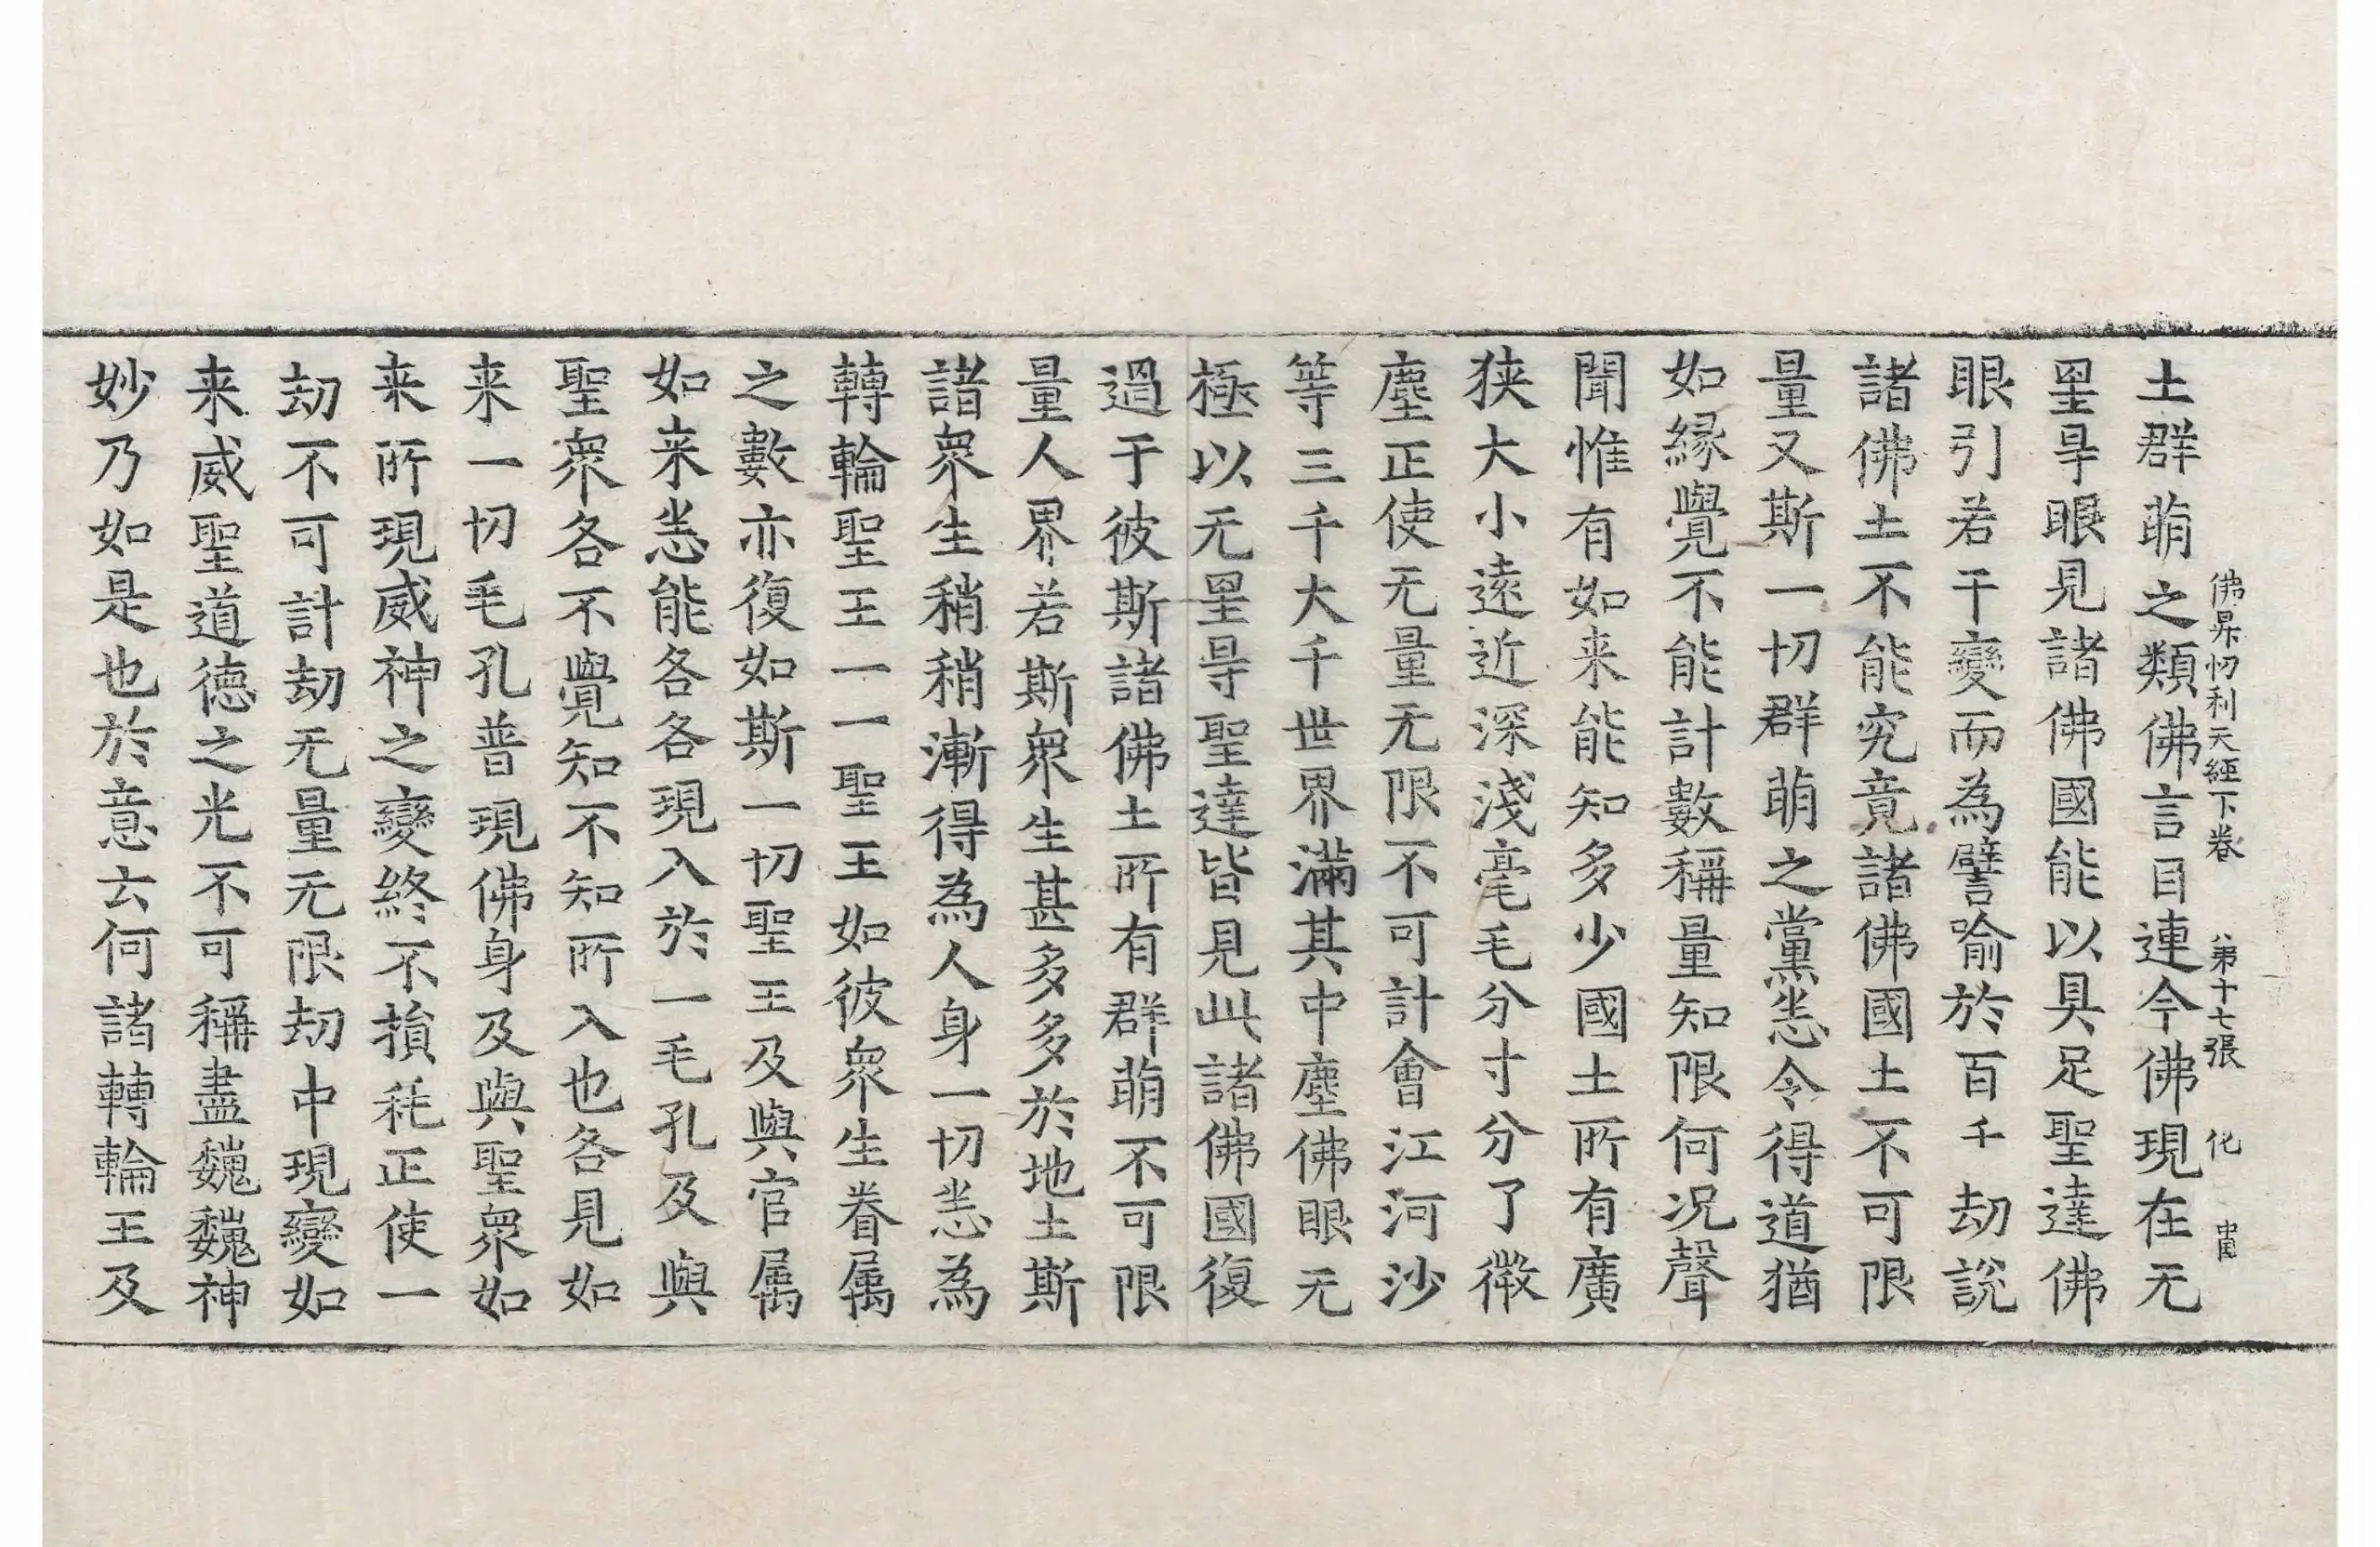 佛昇忉利天經下卷 第十七張 化
土群萌之類佛言目連今佛現在无
㘿㝵眼見諸佛國能以具足聖達佛
眼引若干變而為譬喻於百千劫説
諸佛土不能究竟諸佛國土不可限
量又斯一切群萌之黨恙令得道猶
如縁覺不能計數稱量知限何况聲
聞惟有如来能知多少國土所有廣
狹大小遠近深淺毫毛分寸分了微
塵正使无量无限不可計會江河沙
等三千大千世界滿其中塵佛眼无
極以无㘿㝵聖達皆見此諸佛國復
過于彼斯諸佛土所有群萌不可限
量人界若斯衆生甚多多於地土斯
諸衆生稍稍漸得為人身一切恙為
轉輪聖王一一聖王如彼衆生眷属
之數亦復如斯一切聖王及與官属
如来恙能各各現入於一毛孔及與
聖衆各不覺知不知所入也各見如
来一切毛孔普現佛身及與聖衆如
来所現威神之變終不損秏正使一
劫不可計劫无量无限劫中現變如
来威聖道德之光不可稱盡巍巍神
妙乃如是也於意云何諸轉輪王及